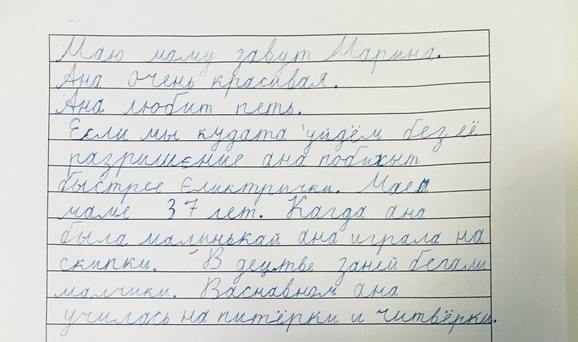 Маю маму завут Марина.
Ана очень красивая.
Ана любит петь.
Если мы кудата уйдём без её
разришение ана побижыт
быстрее Еликтрички. Маей
маме 37 лет. Кагда ана
была малинькай ана играла на
скипки. В децтве заней бегали
малчики. Васнавном ана
училась на питёрки и читвёрки.